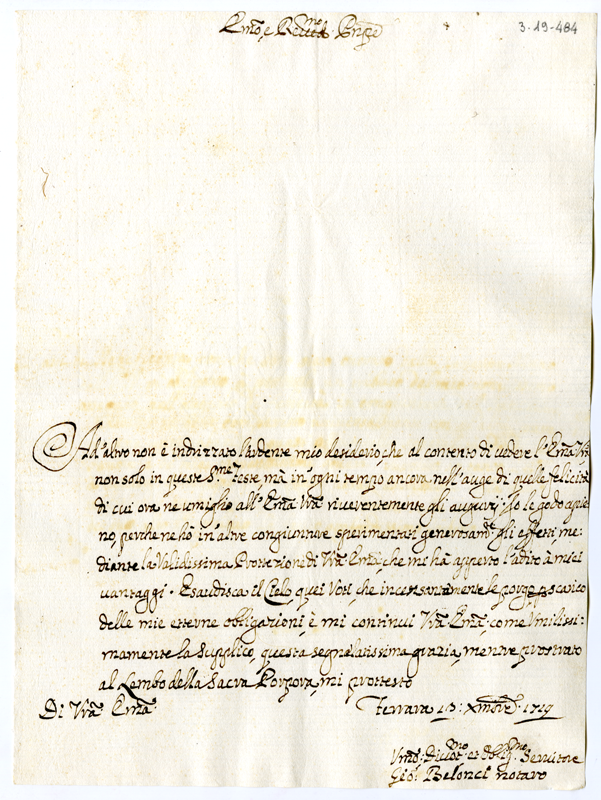 3-19-484
Em̃o, e Reũmo Prñpe
Ad'altro non è indrizzato l'ardente mio desiderio, che al contento di vedere l'Em̃a Vr̃a
non solo in queste S.me Feste, mà in'ogni tempo ancora nell'auge di quelle felicità
di cui ora ne umiglio all'Em̃a Vr̃a riverentemente gli augurij: Io le godo apie=
no, perche ne hò in'altre congiunture sperimentati generosam.te gli effetti, me=
diante la Validissima Protterzione di Vr̃a Em̃a, che mi hà apperto l'adito à miei
vantaggi. Esaudisca il Cielo, quei Voti, che incessantemente le porgo p scarico
delle mie etterne obligazioni, è mi continui Vr̃a Em̃a, come Vmilissi=
mamente la Supplico, questa segnalatissima grazia, mentre prostrato
al Lembo della Sacra Porpora, mi prottesto
Di Vr̃a Em̃a
Ferrara 13: Xmbre 1719
Vmo: Diuot.mo et Obblig.mo Seruitore
Gio: Belonci notaro